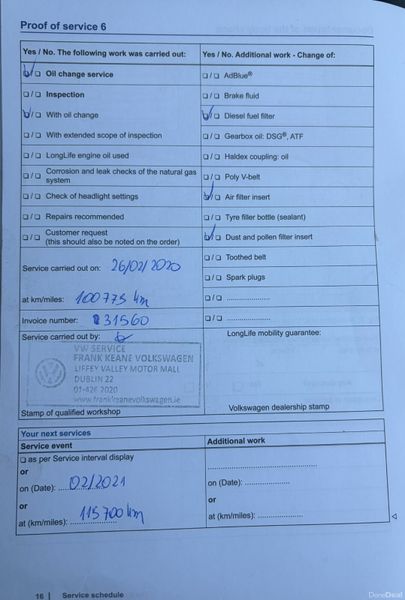 Proof of service 6
Yes / No. The following work was carried out:
☑/☐ Oil change service
☐/☐ Inspection
☑/☐ With oil change
☐/☐ With extended scope of inspection
☐/☐ LongLife engine oil used
☐/☐ Corrosion and leak checks of the natural gas
system
☐/☐ Check of headlight settings
☐/☐ Repairs recommended
☐/☐ Customer request
(this should also be noted on the order)
Service carried out on: 26/02/2020
at km/miles: 100775 km
Invoice number: 31560
Service carried out by:
VW SERVICE
FRANK KEANE VOLKSWAGEN
LIFFEY VALLEY MOTOR MALL
DUBLIN 22
01-426 2020
www.frankkeanevolkswagen.ie
Stamp of qualified workshop
Yes / No. Additional work - Change of:
☐/☐ AdBlue®
☐/☐ Brake fluid
☑/☐ Diesel fuel filter
☐/☐ Gearbox oil: DSG®, ATF
☐/☐ Haldex coupling: oil
☐/☐ Poly V-belt
☑/☐ Air filter insert
☐/☐ Tyre filler bottle (sealant)
☑/☐ Dust and pollen filter insert
☐/☐ Toothed belt
☐/☐ Spark plugs
☐/☐ ......................
☐/☐ ......................
LongLife mobility guarantee:
Volkswagen dealership stamp
Your next services
Service event
☐ as per Service interval display
or
on (Date): 02/2021
or
at (km/miles): 115 700 km
Additional work
......................................
on (Date): ................
or
at (km/miles): ................
16 | Service schedule
DoneDeal